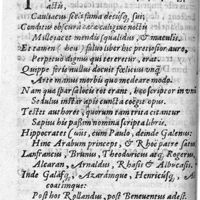 actis,
Cautatus sectis fama decusq́, sui,
Conditus obscura nec caligine noctis
Mille scatet mendis squalidus, & maculis.
Et tamen heu solui liber hic pretiosior auro,
Perpetuo dignus qui tereretur, erat.
Quippe feris nullus docuit foecliciùs vnq́
Aere minui morbo quo medeare modo.
Nam quæ sparsa locis erant, hoc scriptor in vnū
Sedulus instar apis cuncta coëgit opus.
Testes authores, quorum ram rita citantur
Sæpius his passim nomina scripta libris.
Hippocrates Cuius, cum Paulo, deinde Galenus:
Hinc Arabum princeps, & Rhoi parte satus.
Lanfrancus, Brunus, Theodoricus atq́, Rogerus,
Alcaran, Arnaldus, Rhasis & Albucasis.
Inde Galafq́, Azaramque, Henricusq́, A
coatimque:
Post hos Rollandus, post Beneuentus adest.